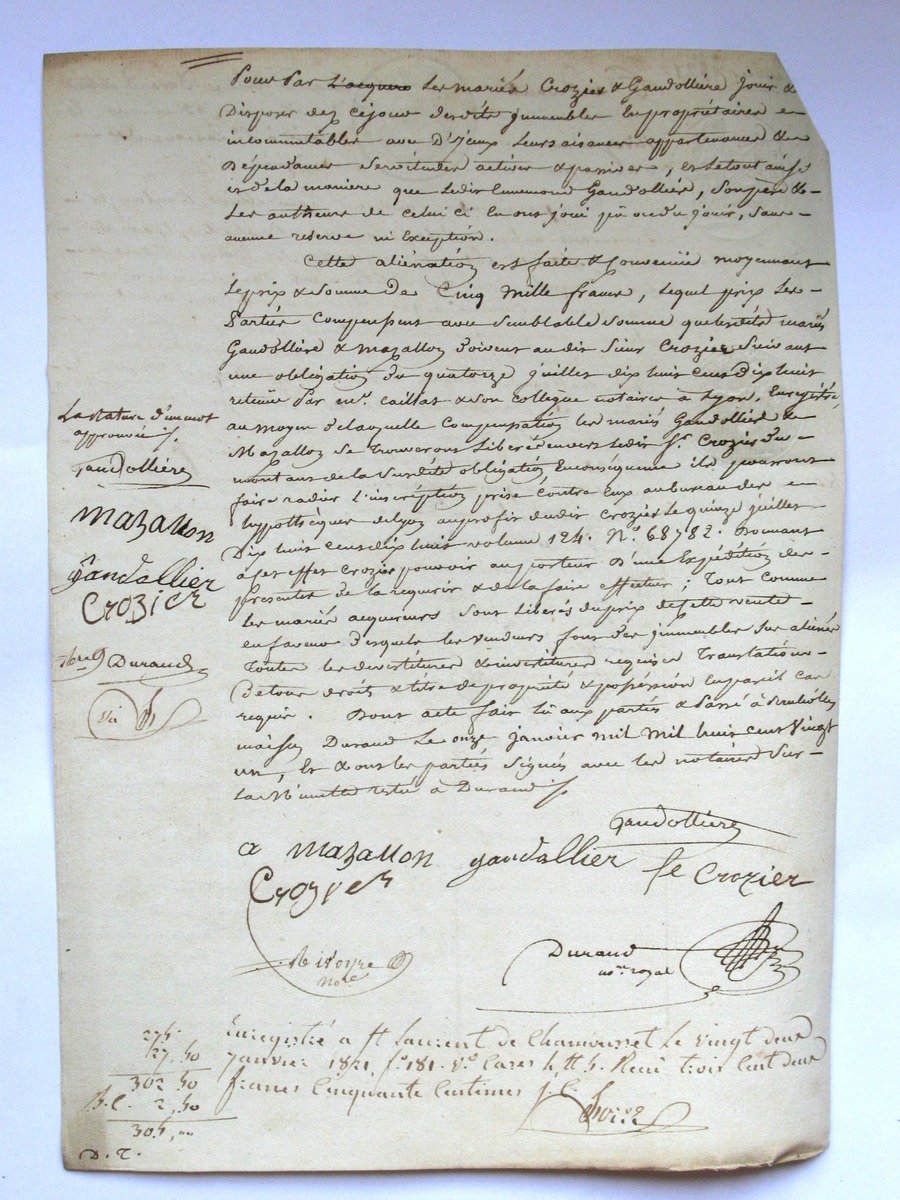 Pour Par L'acquero Les mariés Crozier & Gandolliere jouir &
Disposer dez cejour desdits jmmeubles En propriétaires
incommutables avec D'Yceux Leurs aisances appartenances &
Dépendances Servitudes actives & passives, & le tout ainsi
et de la maniere que ledit Ennemond Gandollier, Son père &
Les autheurs de celui ci En ont joui pû ou du jouir, Sans
aucune reserve ni Exception.
Cette aliénation est faite & Convenüe moyennant
Le prix & Somme De Cinq Mille francs, lequel prix Les
Parties Compensent avec Semblable Somme que lesdits mariés
Gandolliere & Mazallon doivent au dit Sieur Crozier Suivant
une obligation du quatorze juillet dix huit Cent Dix huit
retenüe Par Me. Caillat & Son Collègue notaires à Lyon, Enregistré
au moyen de laquelle Compensation les mariés Gandollier &
Mazallon Se trouveront Libérés envers ledit Sr. Crozier Du
montant de la Susdite obligation En conséquence ils pourront
faire radier L'inscription prise Contre Eux au bureau des
hypothèques de Lyon au profit dudit Crozier Le quinze juillet
Dix huit Cent dix huit volume 124. N°. 68782. Donnant
à cet effet Crozier pouvoir au porteur D'une Expédition des
présentes de la requerir & de la faire effectuer ; Tout Comme
les mariés acquereurs Sont Libérés du prix de Cette vente
en faveur desquels les vendeurs font des jmmeubles Sus aliénés
Toutes les devestitures & investitures requises Translation
De tous droits & titres de propriété & possession En pareil Cas
requis. Dont acte fait Lû aux parties & Passé à
maison Durand Le onze janvier mil Mil huit cent Vingt
un, Et Ont les parties Signés avec les notaires Sur
La Minutte restée à Durand
La Rature d'un mot
approuvée
Gandolliere
Mazallon
gandallier
Crozier
Durand
Gandolliere
a mazallon gandallier fe Crozier
Crozyer
Durand
nore royal
nore
275.
27, 50
302, 50
2, 50
305, "
D. T.
Enregistré a St Laurent de Chamousset Le vingt deux
janvier 1821, fo. 181. Vo. Cases 4, Reçu trois Cent deux
francs Cinquante Centimes